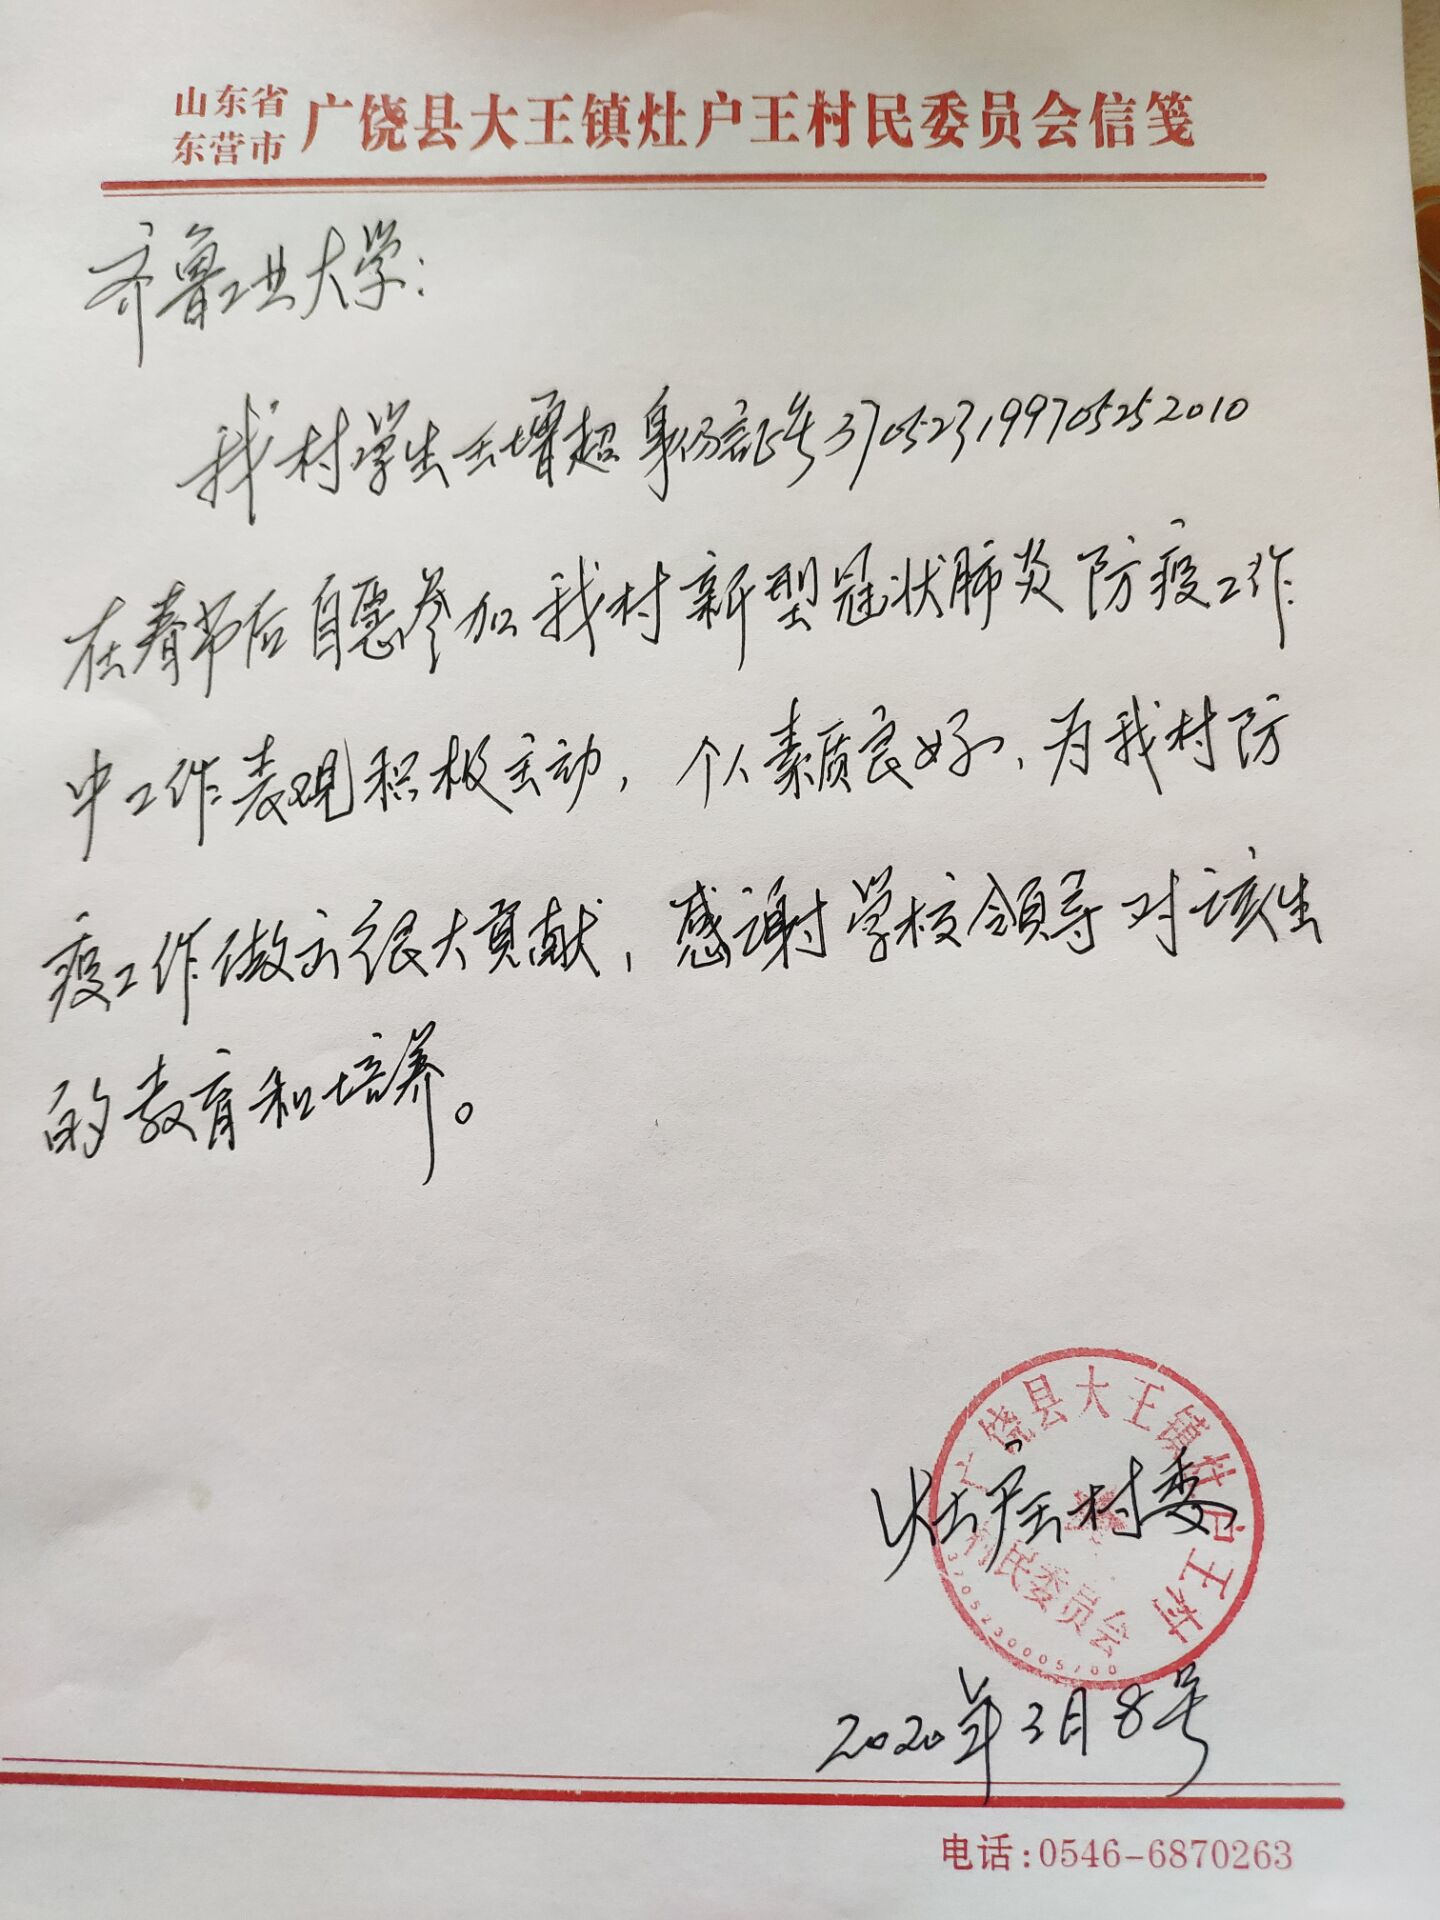 山东省
东营市
广饶县大王镇灶户王村民委员会信笺
齐鲁工业大学：
我村学生王增超身份证号370523199705252010
在春节后自愿参加我村新型冠状肺炎防疫工作
中工作表现积极主动，个人素质良好，为我村防
疫工作做出很大贡献，感谢学校领导对该生
的教育和培养。
广饶县大王镇灶户王村
村民委员会
3705230005700
灶户王村委
2020年3月8号
电话：0546-6870263